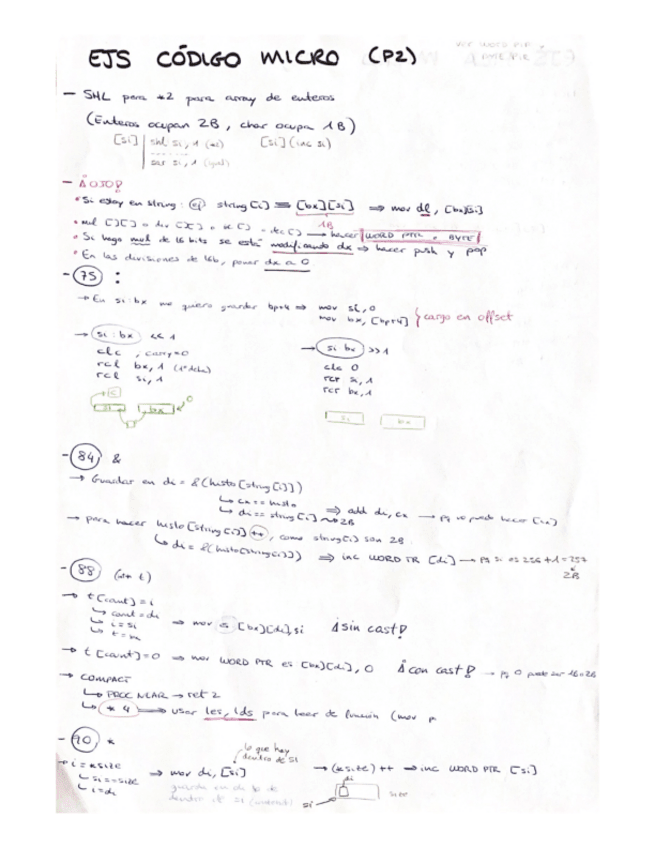 VER WORD PTR,
BYTE PTR
EJS CÓDIGO MICRO (P2)
- SHL para *2 para array de enteros
(Enteros ocupan 2B, char ocupa 1B)
[si] shl si, 1 (*2) [si] (inc si)
si, 1 (igual)
- ¡OJO!
• Si estoy en string: ej string[i] ≡ [bx][si] ⇒ mov dl, [bx][si]
1B
• mul [][] o div [][] o → hacer WORD PTR o BYTE
• Si hago mul de 16 bits se está modificando dx ⇒ hacer push y pop
• En las divisiones de 16b, poner dx a 0
- 75 :
→ En si:bx me quiero guardar bp+4 ⇒ mov si, 0
mov bx, [bp+4] } cargo en offset
→ si:bx << 1
clc , carry=0
rcl bx, 1
rcl si, 1
C
si bx 0
→ si bx >> 1
clc 0
rcr si, 1
rcr bx, 1
si bx
- 84 &
→ Guardar en di = &(histo[string[i]])
↳ cx == histo
↳ di == string[i] → 2B ⇒ add di, cx → pq no puedo hacer [cx]
→ para hacer histo[string[i]]++, como string[i] son 2B
↳ di = &(histo[string[i]]) ⇒ inc WORD PTR [di] → pq si es 256+1=257
2B
- 88
→ t[cont] = i
↳ cont = di
↳ i = si
↳ t =
⇒ mov es [bx][di], si ¡sin cast!
→ t[cont]=0 ⇒ mov WORD PTR es [bx][di], 0 ¡con cast! → pq 0 puede ser
→ COMPACT
↳ PROC NEAR → ret 2
↳ * 4 ⇒ usar les, lds para leer de función (mov
- 90 *
→ i = *size
↳ si == size
↳ i = di
⇒ mov di, [si]
lo que hay dentro de si
guardo en di lo de
dentro de si
→ (*size)++ ⇒ inc WORD PTR [si]
di
si size